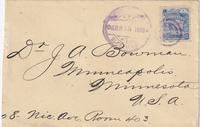 Dr J. A. Bowman
Minneapolis
Minnesota
U.S.A.
Nic. Ave. Room 403